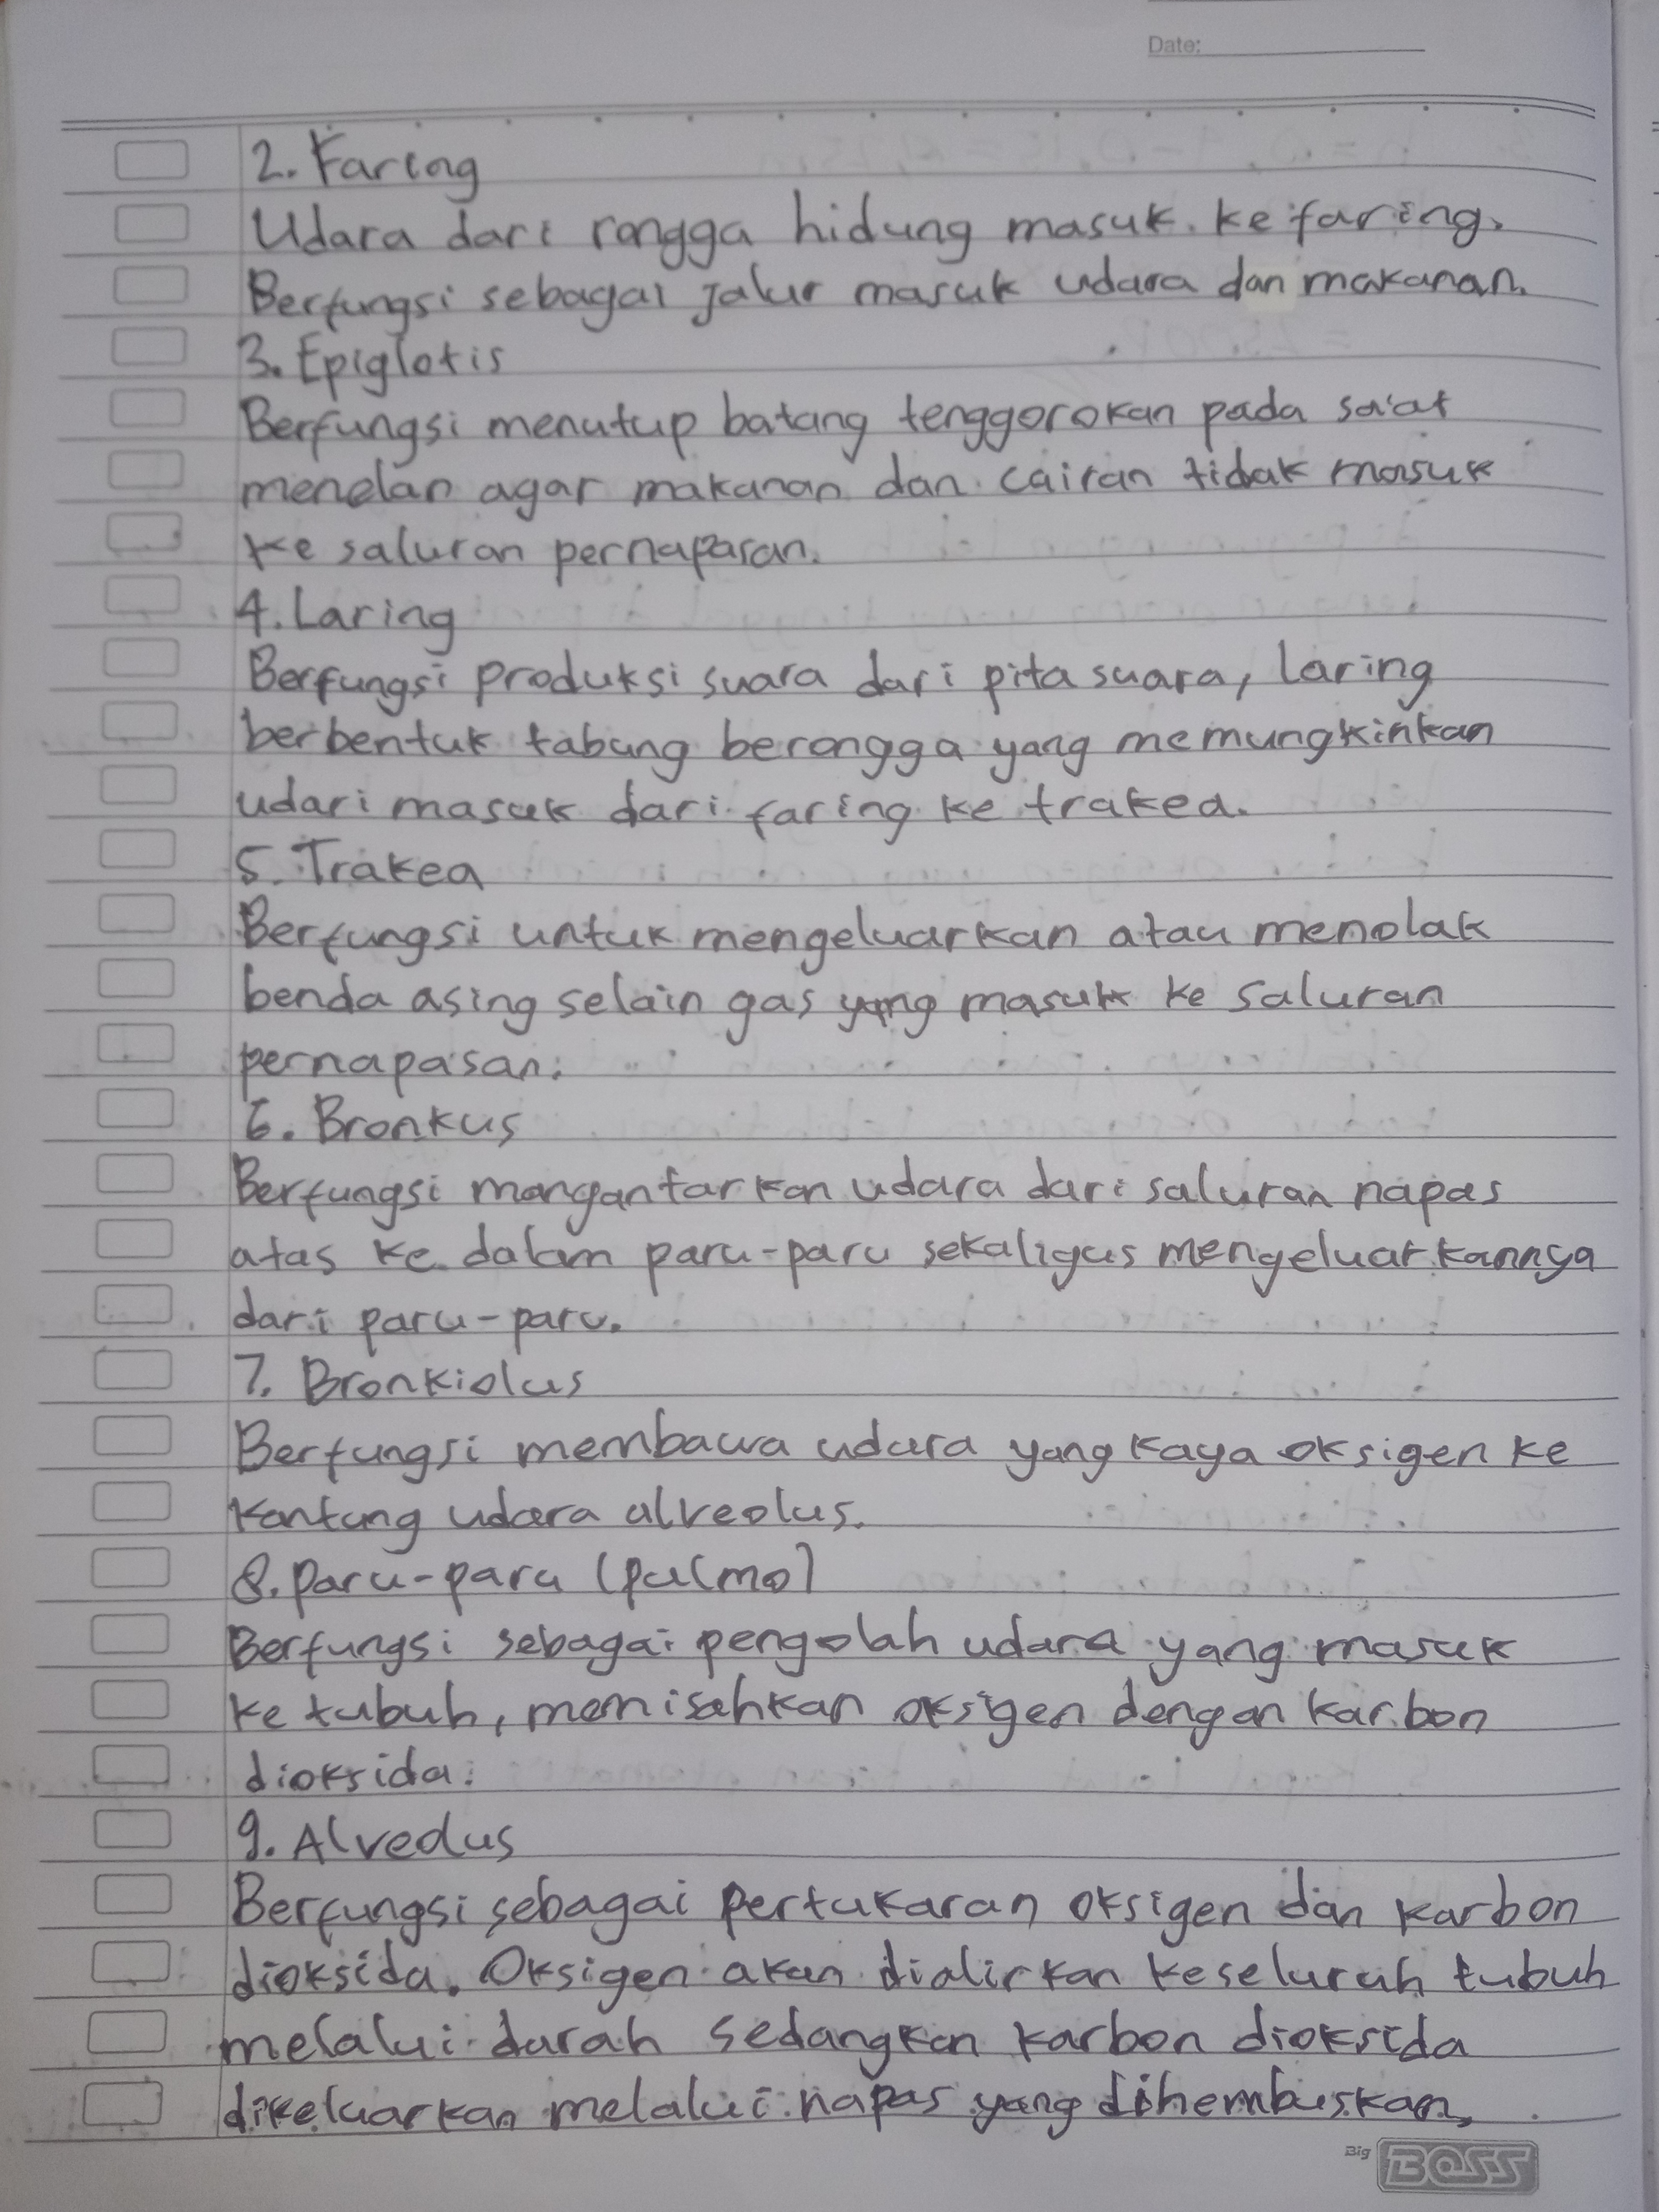 Date:
2. Faring
Udara dari rongga hidung masuk ke faring.
Berfungsi sebagai jalur masuk udara dan makanan.
3. Epiglotis
Berfungsi menutup batang tenggorokan pada sa'at
menelan agar makanan dan cairan tidak masuk
ke saluran pernapasan.
4. Laring
Berfungsi produksi suara dari pita suara, laring
berbentuk tabung berongga yang memungkinkan
udari masuk dari faring ke trakea.
5. Trakea
Berfungsi untuk mengeluarkan atau menolak
benda asing selain gas yang masuk ke saluran
pernapasan.
6. Bronkus
Berfungsi mangantarkan udara dari saluran napas
atas ke dalam paru-paru sekaligus mengeluarkannya
dari paru-paru.
7. Bronkiolus
Berfungsi membawa udara yang kaya oksigen ke
kantung udara alveolus.
8. Paru-paru (pulmo)
Berfungsi sebagai pengolah udara yang masuk
ke tubuh, memisahkan oksigen dengan karbon
dioksida.
9. Alveolus
Berfungsi sebagai pertukaran oksigen dan karbon
dioksida. Oksigen akan dialirkan keseluruh tubuh
melalui darah sedangkan karbon dioksida
dikeluarkan melalui napas yang dihembuskan.
Big BOSS